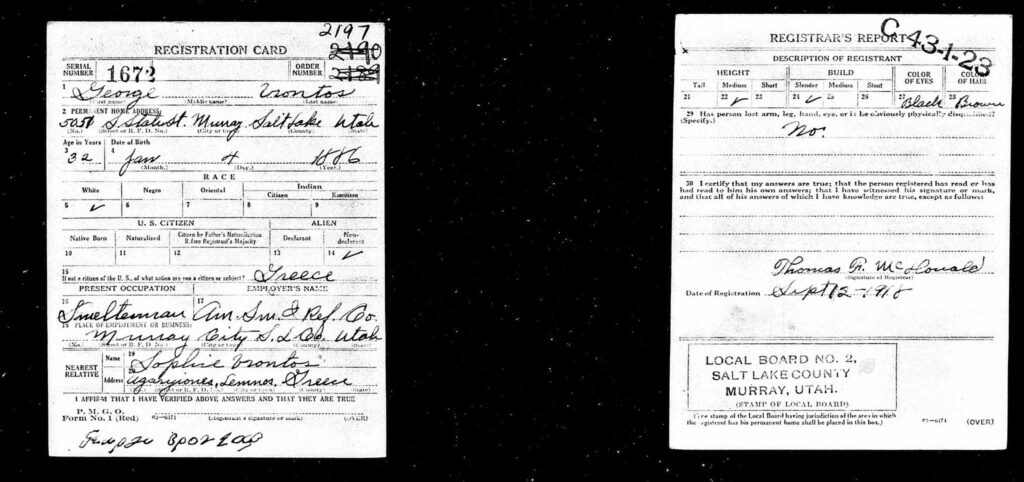 2197
REGISTRATION CARD 2190
SERIAL NUMBER 1672 ORDER NUMBER 2189
1 George Vrontos
(First name) (Middle name) (Last name)
2 PERMANENT HOME ADDRESS:
5050 S State St. Murray Salt Lake Utah
(No.) (Street or R. F. D. No.) (City or town) (County) (State)
Age in Years Date of Birth
3 32 4 Jan 4 1886
(Month.) (Day.) (Year.)
RACE
White Negro Oriental Indian
Citizen Noncitizen
5 ✓ 6 7 8 9
U. S. CITIZEN ALIEN
Native Born Naturalized Citizen by Father's Naturalization Before Registrant's Majority Declarant Non-declarant
10 11 12 13 14 ✓
15 If not a citizen of the U. S., of what nation are you a citizen or subject? Greece
PRESENT OCCUPATION EMPLOYER'S NAME
16 Smelterman 17 Am. Sm. & Ref. Co.
18 PLACE OF EMPLOYMENT OR BUSINESS:
Murray City S. L. Co. Utah
(No.) (Street or R. F. D. No.) (City or town) (County) (State)
NEAREST RELATIVE Name 19 Sophie Vrontos
Address 20 Lemnos, Greece
(No.) (Street or R. F. D. No.) (City or town) (State)
I AFFIRM THAT I HAVE VERIFIED ABOVE ANSWERS AND THAT THEY ARE TRUE
P. M. G. O.
Form No. 1 (Red) 03-6171 (Registrant's signature or mark) (OVER)
C 43-1-23
REGISTRAR'S REPORT
DESCRIPTION OF REGISTRANT
HEIGHT BUILD COLOR OF EYES COLOR OF HAIR
Tall Medium Short Slender Medium Stout
21 22 ✓ 23 24 ✓ 25 26 27 Black 28 Brown
29 Has person lost arm, leg, hand, eye, or is he obviously physically disqualified?
(Specify.) No.
30 I certify that my answers are true; that the person registered has read or has
had read to him his own answers; that I have witnessed his signature or mark,
and that all of his answers of which I have knowledge are true, except as follows:
Thomas McDonald
(Signature of Registrar)
Date of Registration Sept 12-1918
LOCAL BOARD NO. 2,
SALT LAKE COUNTY
MURRAY, UTAH.
(STAMP OF LOCAL BOARD)
(The stamp of the Local Board having jurisdiction of the area in which
the registrant has his permanent home shall be placed in this box.)
03-6171 (OVER)